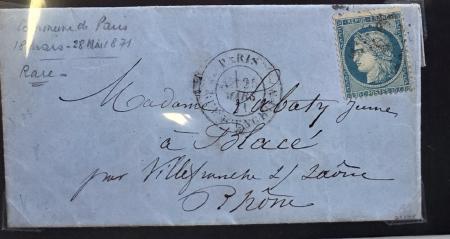 Commune de Paris
18 mars - 28 Mai 1871
Rare
REPUB FRANC
PARIS
MARS
Madame Labaty Jeune
à Blacé
par Villefranche s/ Saône
Rhône